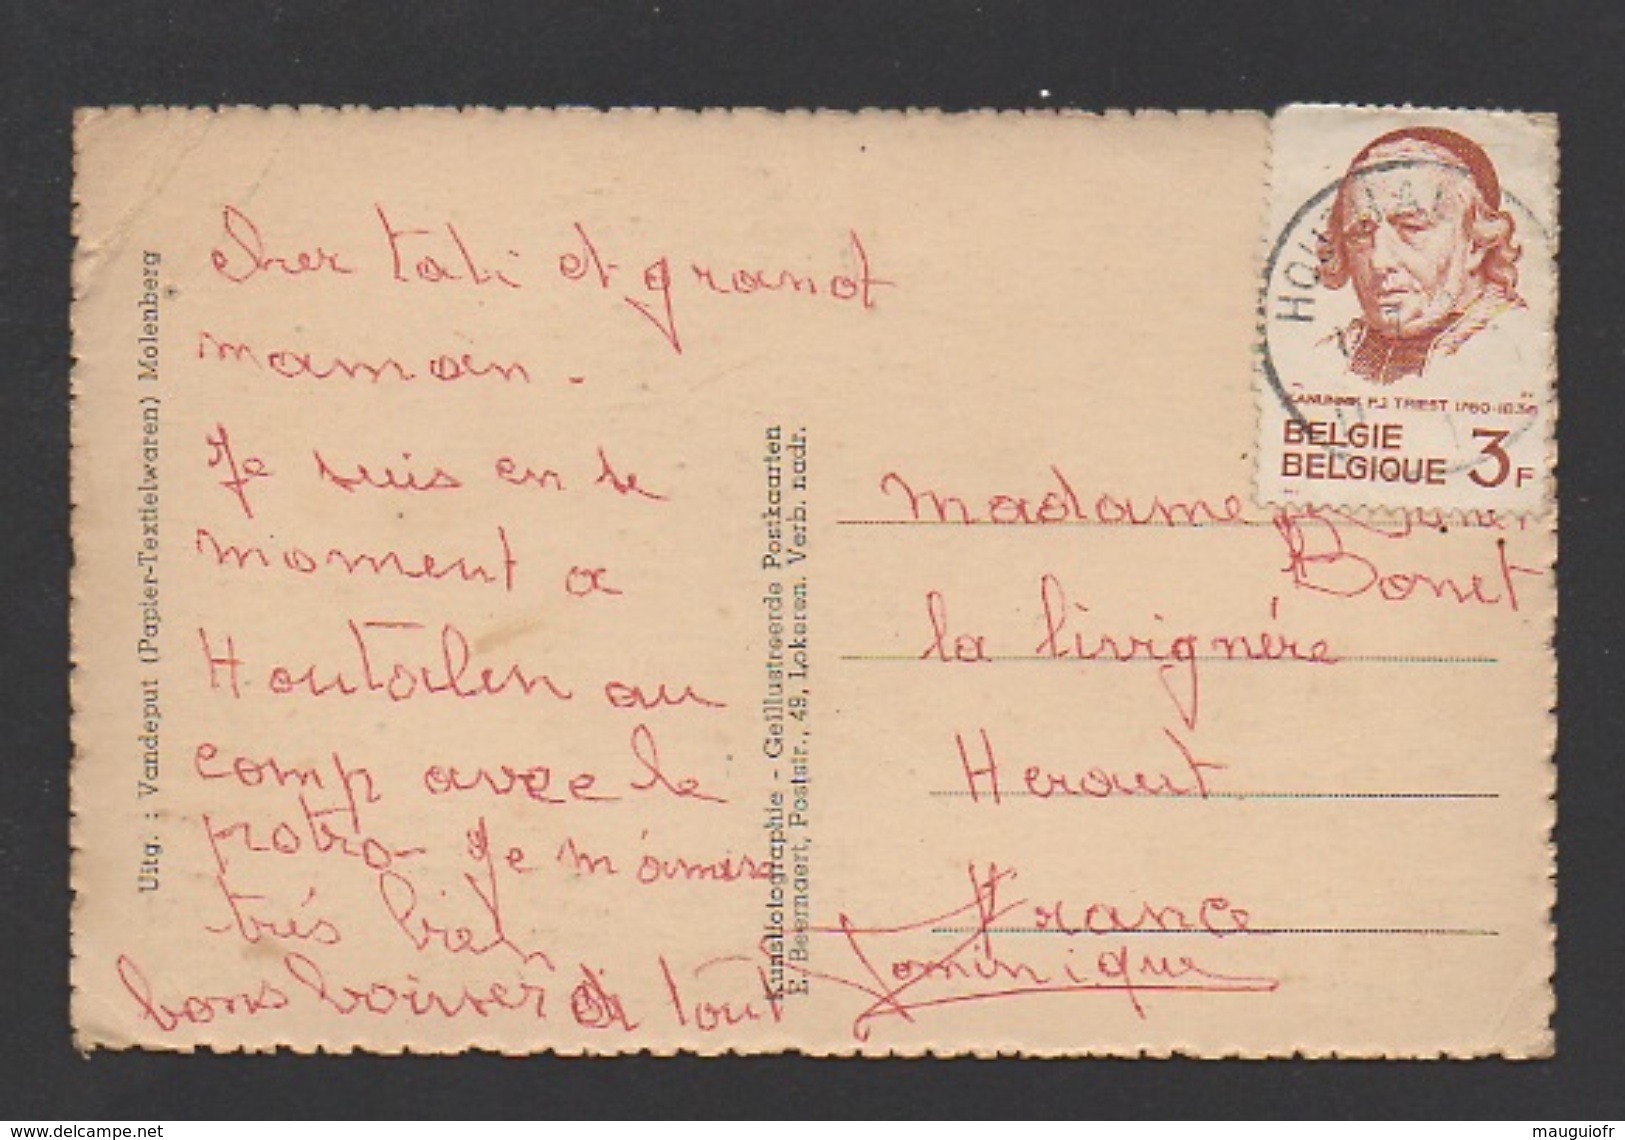 Cher tati et grandt
maman.
Je suis en se
moment a
Houtalen au
camp avec le
patro - Je m'amuse
très bien
bons boisser à tout
Dominique
Madame
Bonet
la livignére
Heraut
France
Uitg. : Vandeput (Papier-Textielwaren) Molenberg
Kunstfotographie - Geïllustreerde Postkaarten
E. Beernaert, Poststr., 49, Lokeren. Verb. nadr.
KANUNNIK P.J. TRIEST 1760-1836
BELGIE
BELGIQUE 3F
www.delcampe.net
mauguiofr